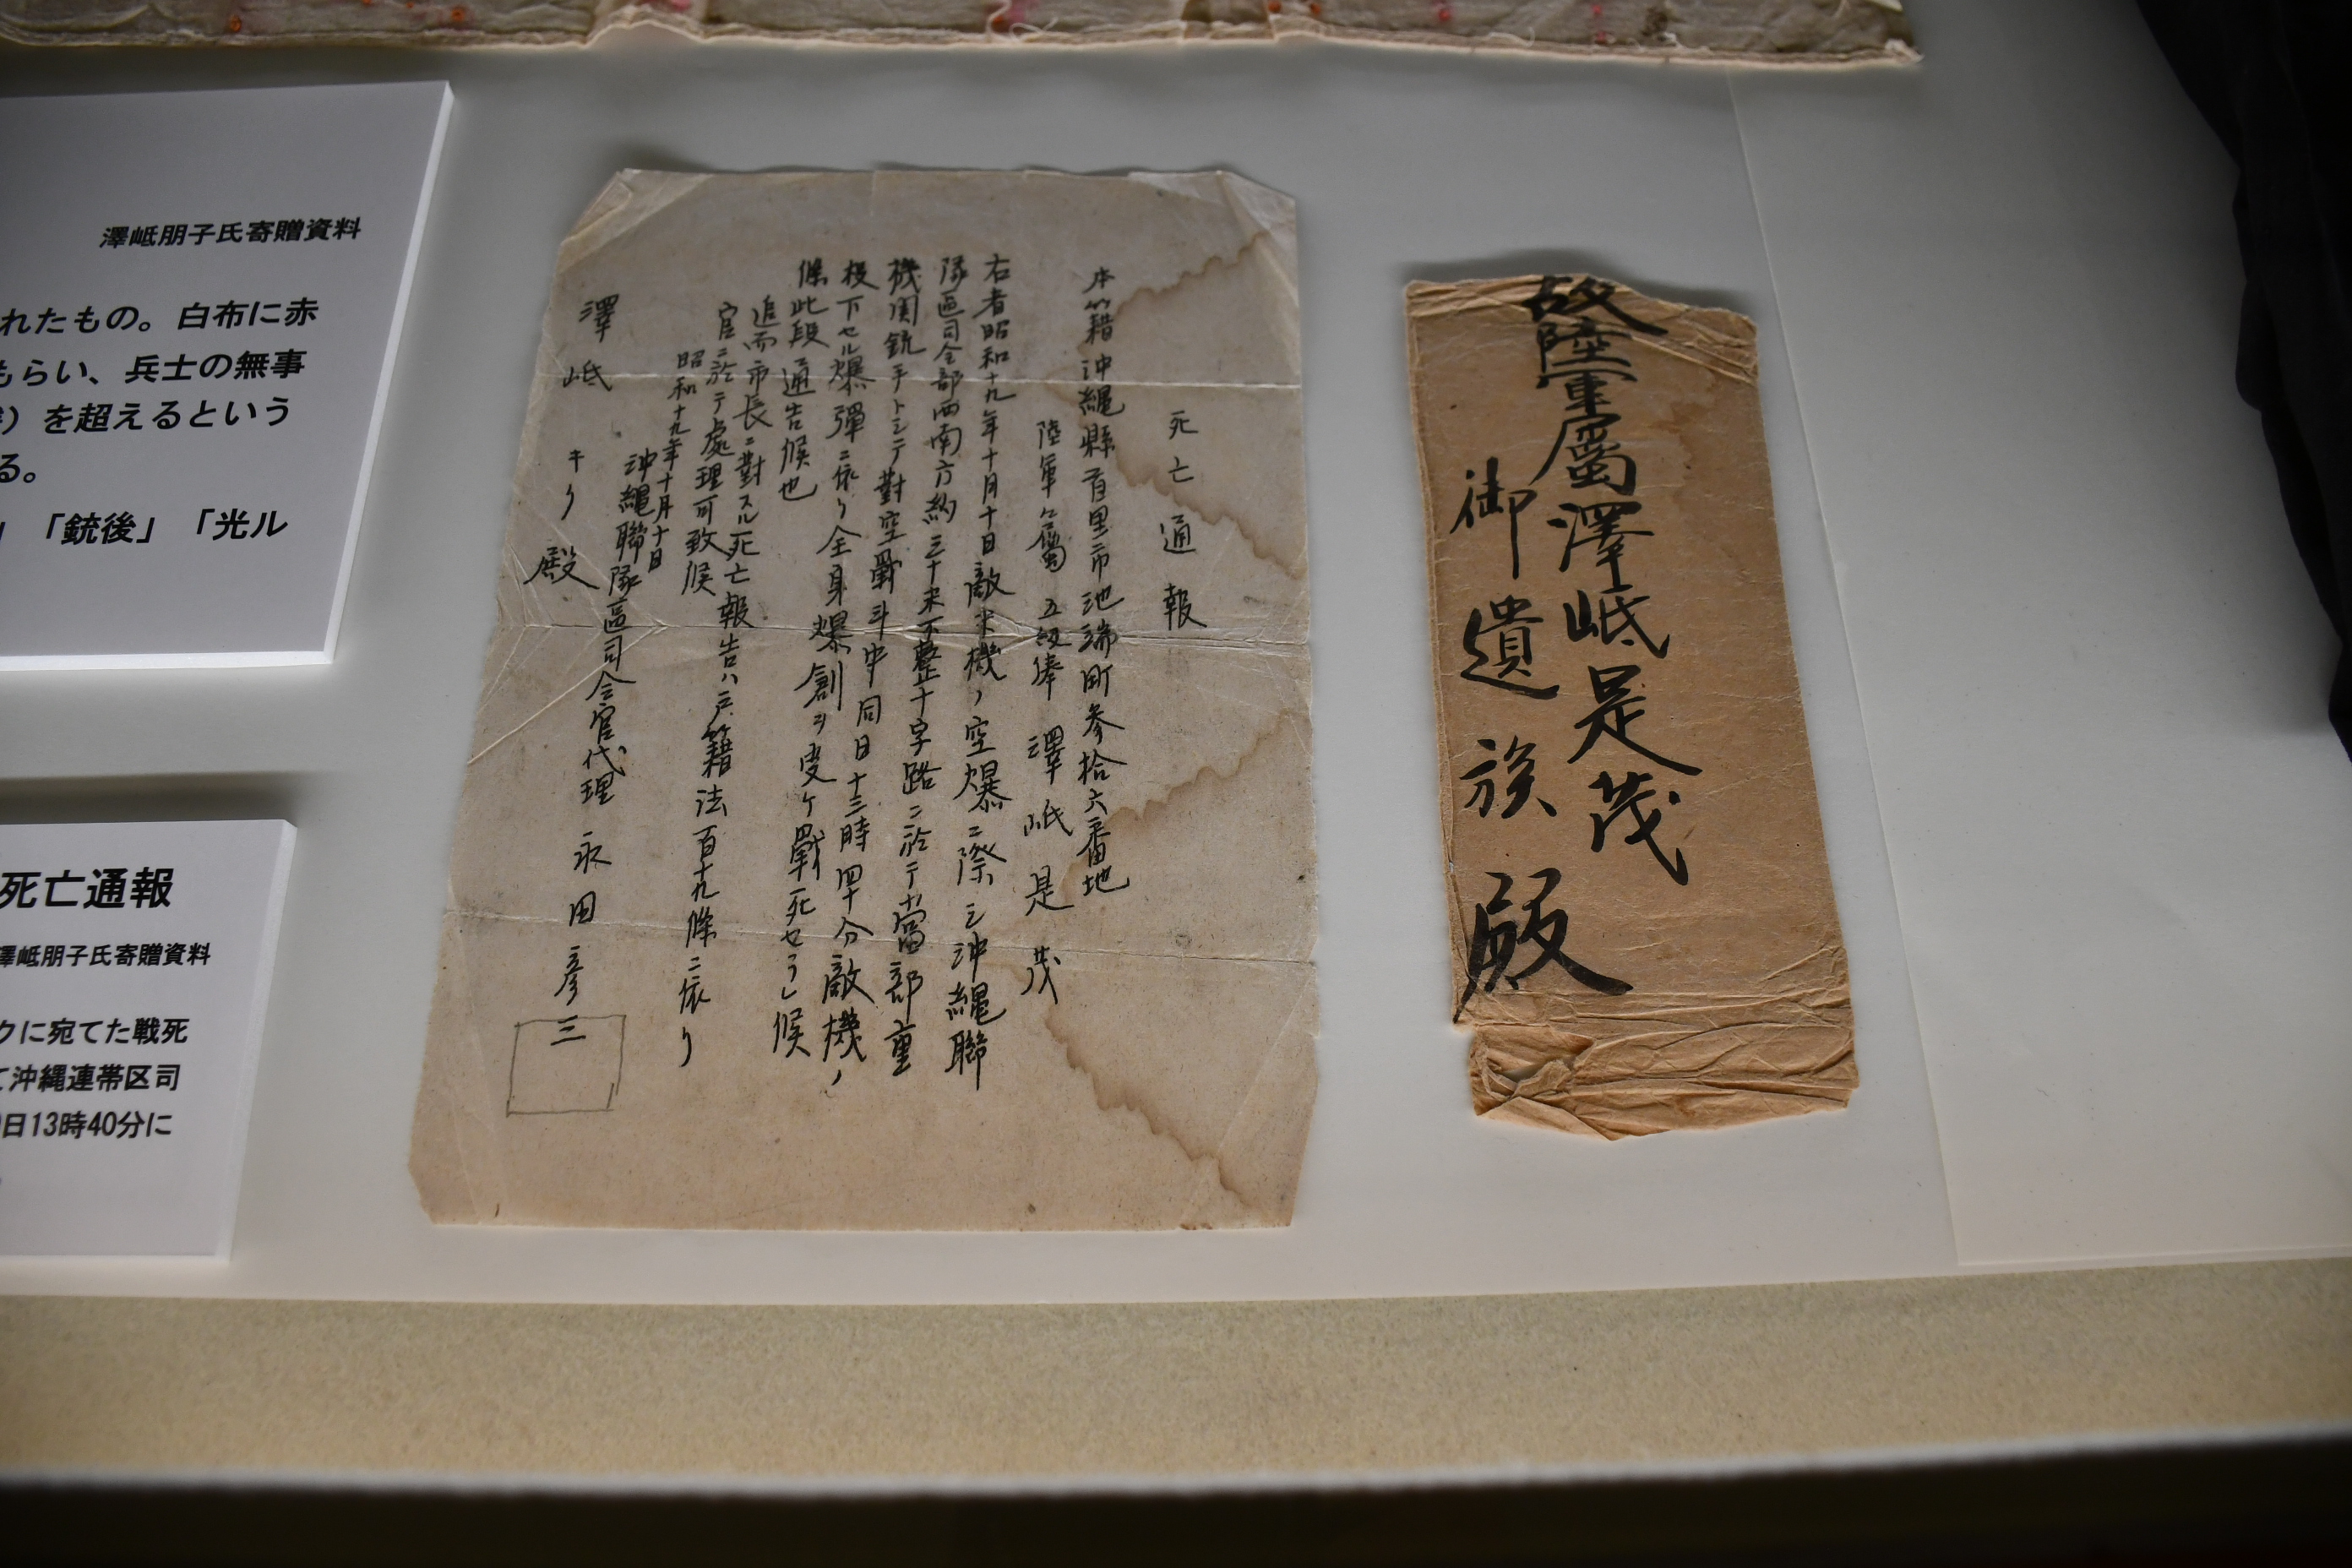 澤岻朋子氏寄贈資料
れたもの。白布に赤
もらい、兵士の無事
）を超えるという
る。
」「銃後」「光ル
死亡通報
澤岻朋子氏寄贈資料
クに宛てた戦死
て沖縄連帯区司
日13時40分に
死亡通報
本籍沖縄縣首里市池端町参拾六番地
陸軍々属 五級俸 澤岻是茂
右者昭和十九年十月十日敵米機ノ空爆ニ際シ沖縄聯
隊區司令部西南方約三十米不整十字路ニ於テ當部重
機関銃手トシテ對空戰斗中同日十三時四十分敵機ノ
投下セル爆彈ニ依リ全身爆創ヲ受ケ戰死セラレ候
條此段通告候也
追而市長ニ對スル死亡報告ハ戸籍法百十九條ニ依リ
官ニ於テ處理可致候
昭和十九年十月十日
沖縄聯隊區司令官代理 永田彦三
澤岻 キク 殿
故陸軍属澤岻是茂
御遺族殿